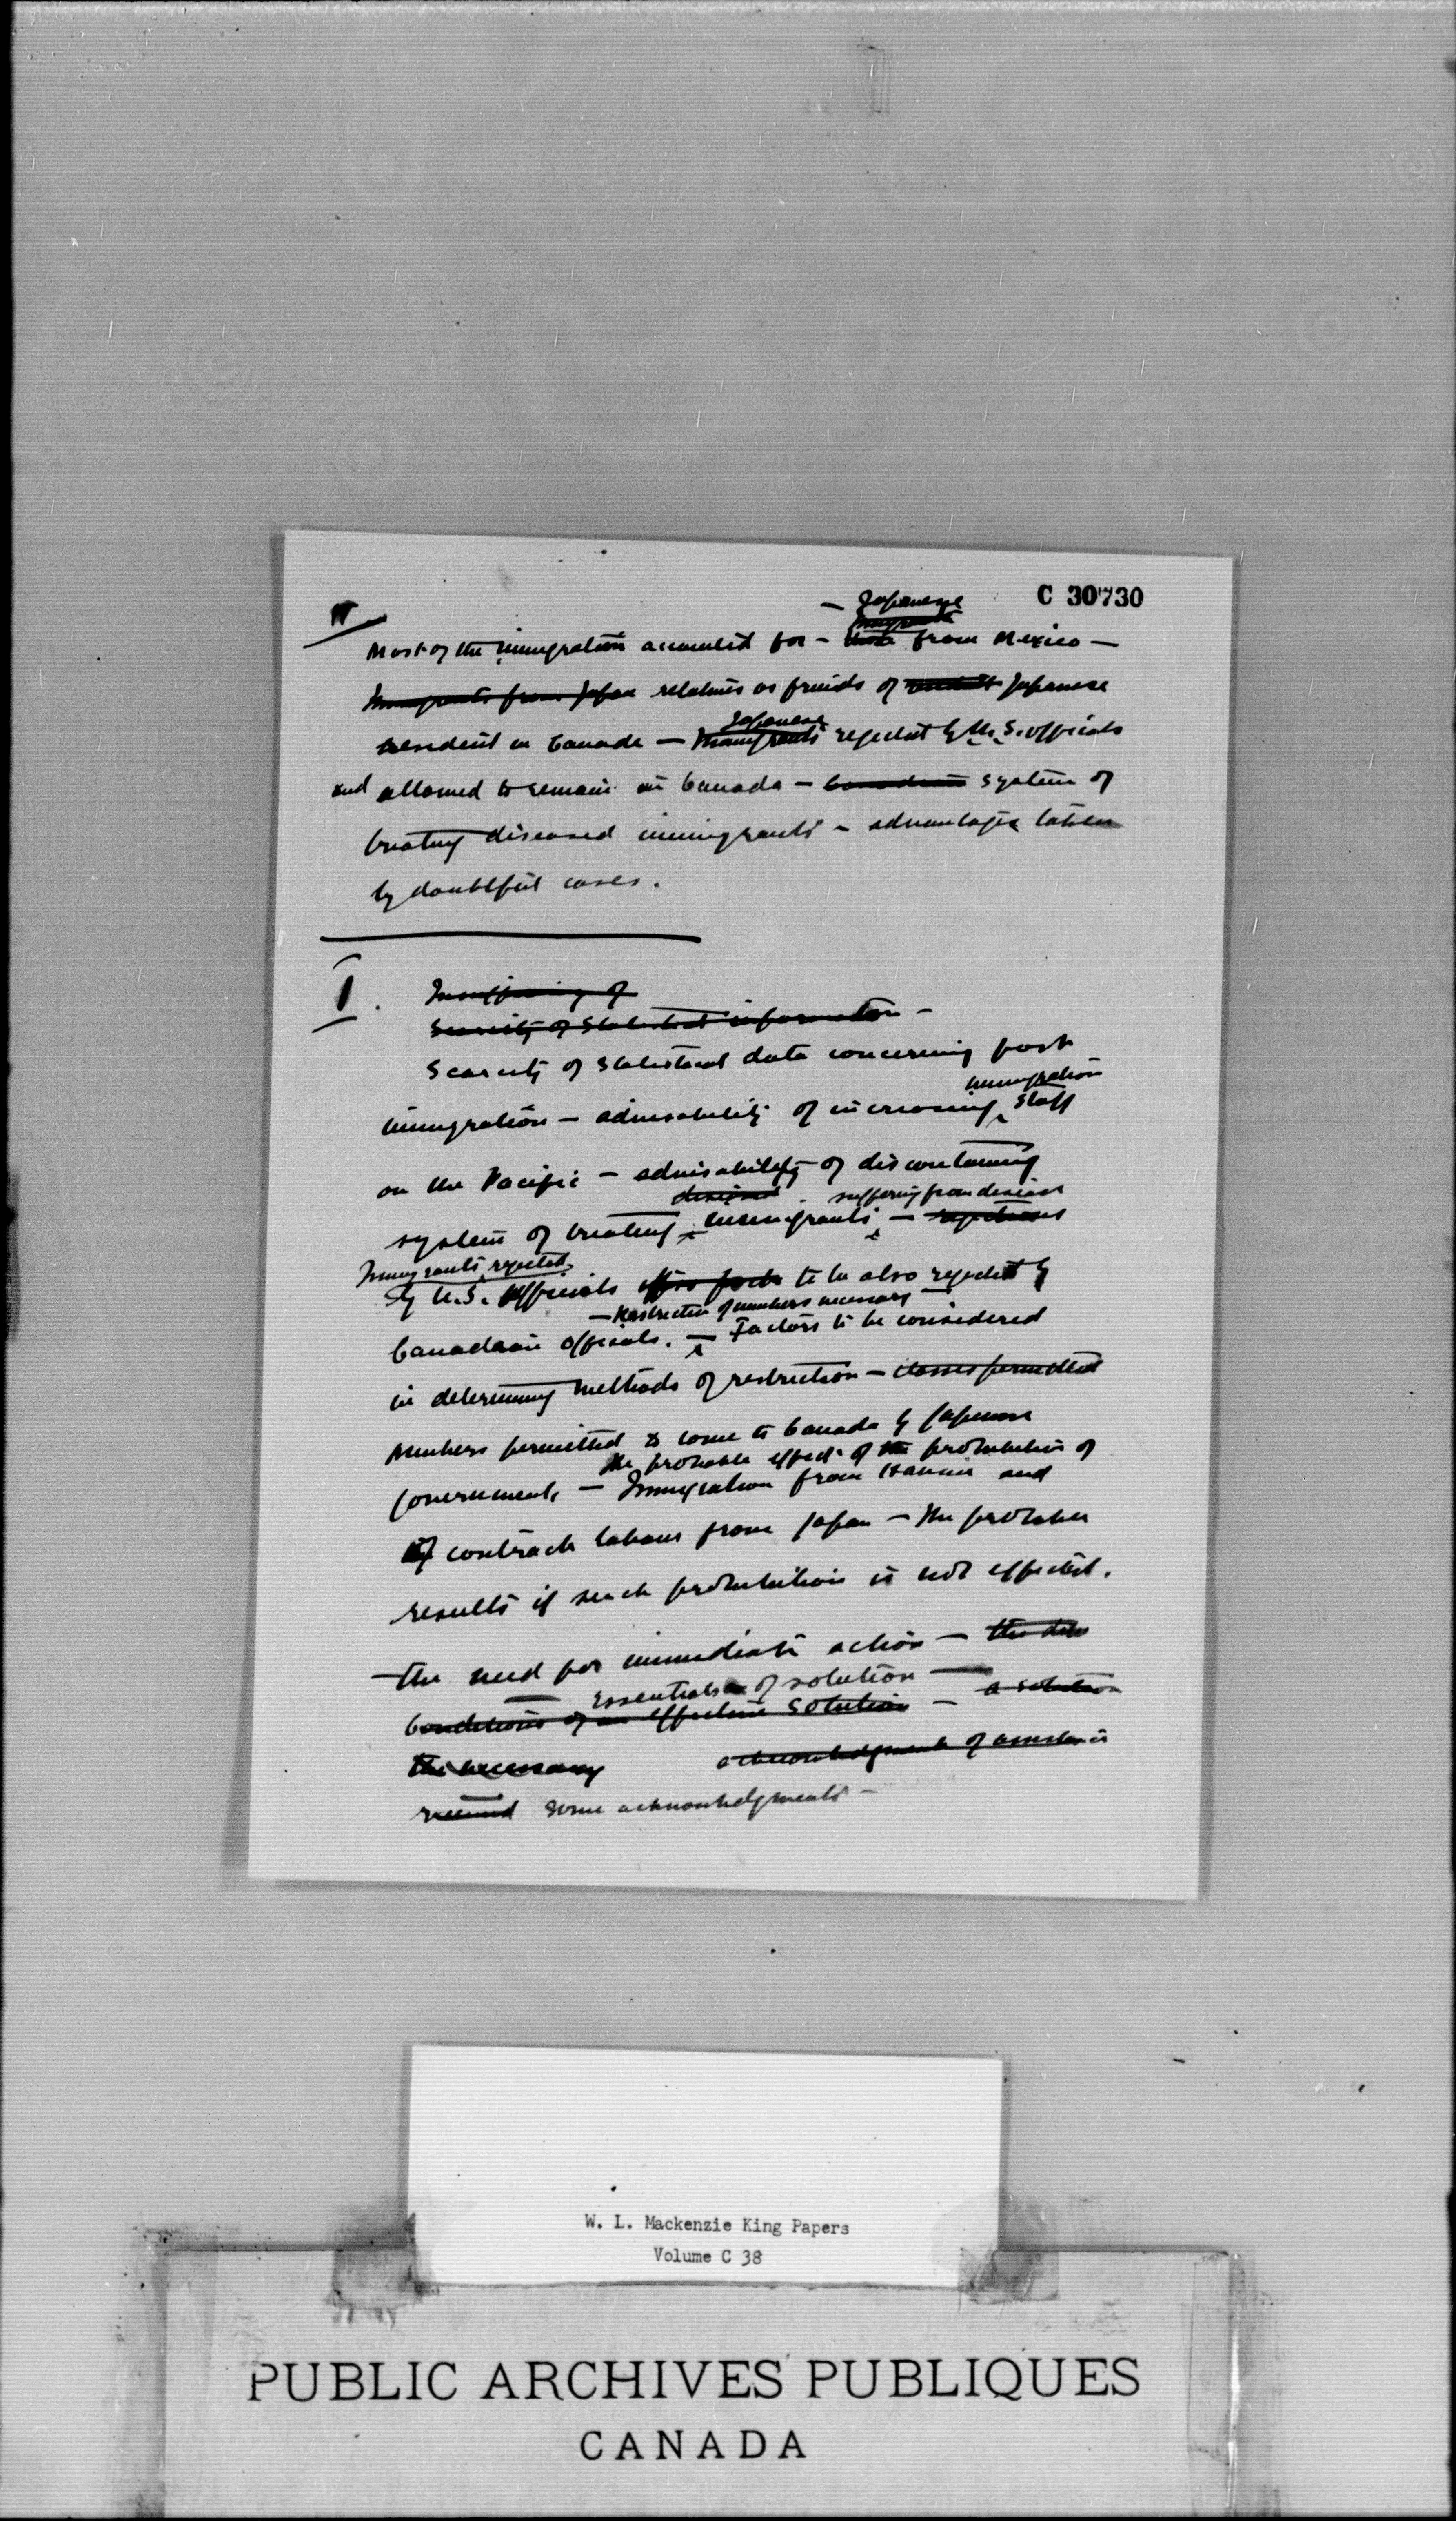 C 30730
IV
— Japanese
Most of the immigration accounted for — from Mexico —
Immigrants from Japan relatives or friends of resident Japanese
Japanese
resident in Canada — Immigrants rejected by U.S. officials
and allowed to remain in Canada — Canadian system of
treating diseased immigrants — advantages taken
by doubtful cases.
I.
Insufficiency of
Scarcity of Statistical information —
Scarcity of statistical data concerning past
immigration
immigration — advisability of increasing staff
on the Pacific — advisability of discontinuing
diseased suffering from disease
system of treating immigrants —
Immigrants rejected
by U.S. Officials to be also rejected by
— Restriction of numbers necessary —
Canadian Officials. — Factors to be considered
in determining methods of restriction — classes permitted
numbers permitted to come to Canada by Japanese
the probable effect of the prohibition of
Government, — Immigration from Hawaii and
of contract labour from Japan — The probable
results if such prohibition is not effected.
— the need for immediate action —
Essentials of solution —
Conditions of an effective solution — a solution
the necessary acknowledgment of assistance
received some acknowledgments —
W. L. Mackenzie King Papers
Volume C 38
PUBLIC ARCHIVES PUBLIQUES
CANADA